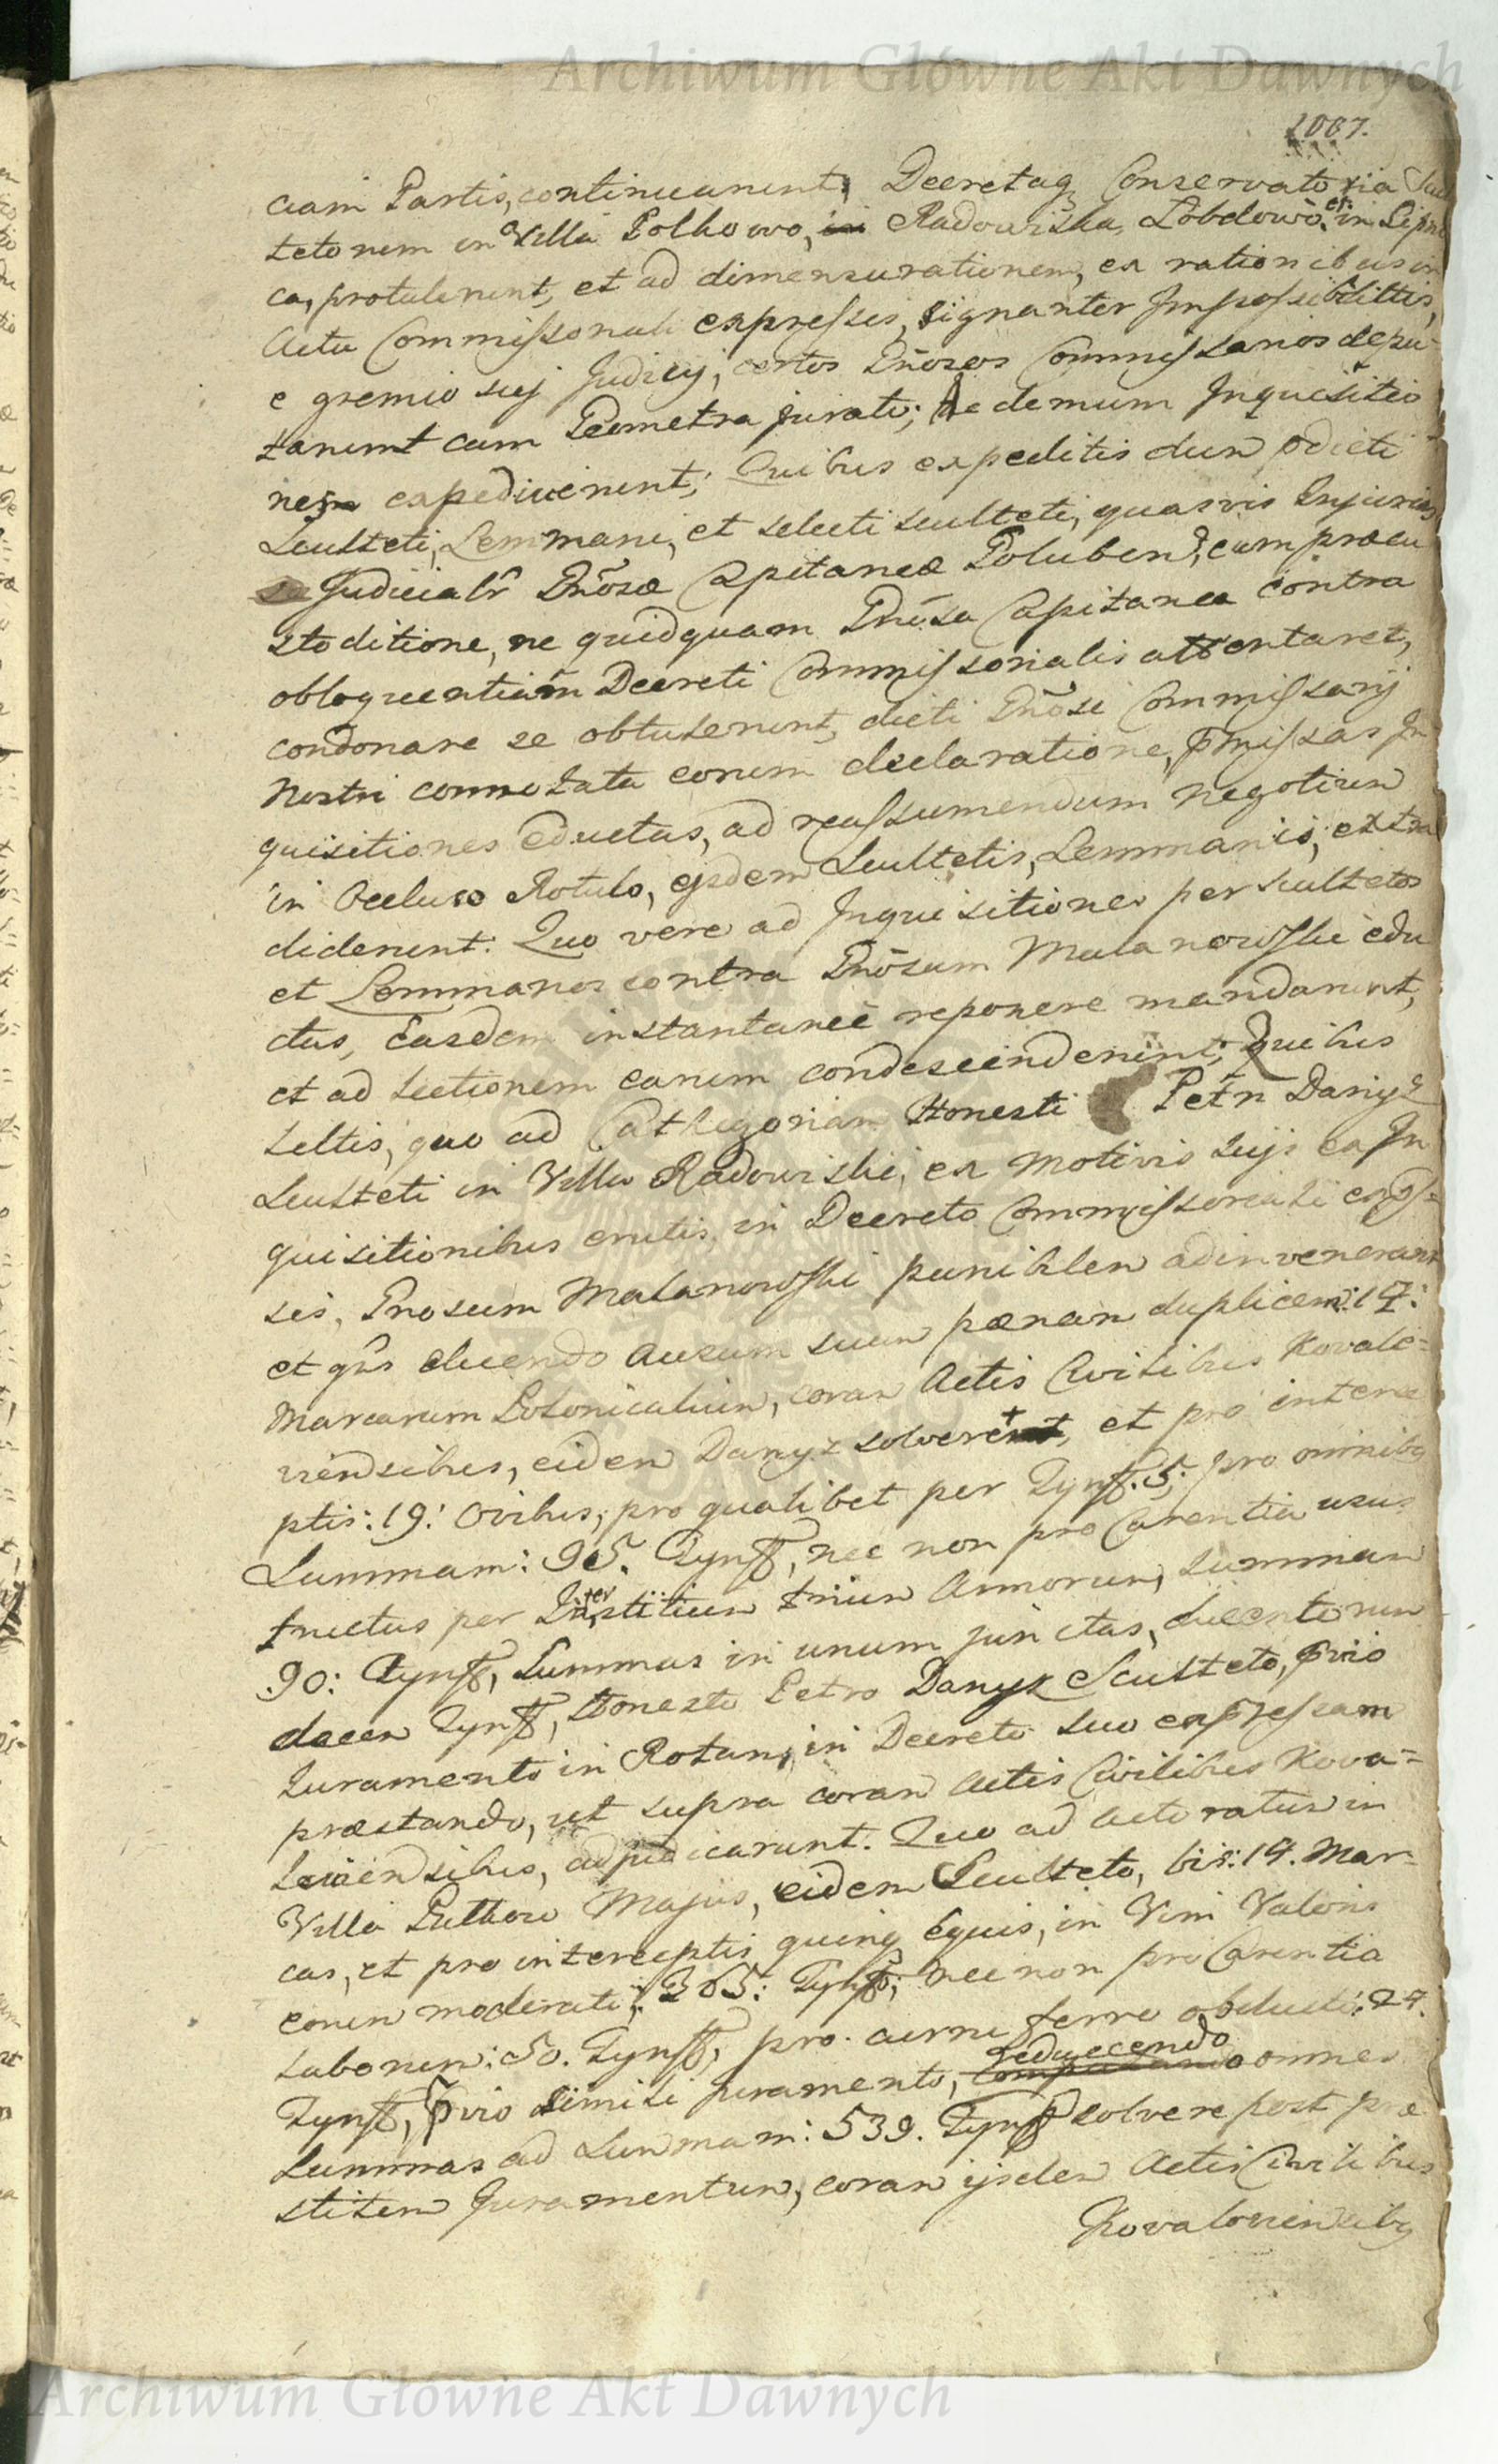 Archiwum Główne Akt Dawnych
1087.
ciam Partis, continuarunt, Decretaq Conservatoria Scul
tetonem in Villa Polkowo, in Radowiska, Lobdowo, et in Lipni
ca, protulerunt, et ad dimensurationem, ex rationibus in
Actu Commissoriali expressis, signanter Impossibilittis,
e gremio suj Judicij, certos Gnosos Commissarios depu-
tarunt cum Geometra jurato; ac demum Inquisitio
nem expediverunt; Quibus expeditis dum pdicti
Sculteti, Lemmani, et selecti sculteti, quasvis Injurias
Judicialr Gnosæ Capitaneæ Golubens, cum præcu
stoditione, ne quidquam Gnosa Capitanea contra
obloquentiam Decreti Commissorialis attentaret,
condonare se obtulerunt, dicti Gnosi Commissarij
Nostri connotata eorum declaratione, pmissas In
quisitiones eductas, ad reassumendum negotium
in Occluso Rotulo, ejsdem Scultetis, Lemmanis, extra
diderunt. Quo vero ad Inquisitiones per scultetos
et Lemmanos contra Gnosum Malanowski edu
ctas, Easdem instantanee reponere mandarunt,
et ad lectionem earum condescenderunt; Quibus
lectis, quo ad Cathegoriam Honesti Petri Danyz
Sculteti in Villa Radowiski, ex motivis suis ex In
quisitionibus erutis, in Decreto Commissoriali expr=
sis, Gnosum Malanowski punibilem adinvenerunt
et qs eluendo Ausum suum pœnam duplicem: 14:
Marcarum Polonicalium, coram Actis Civilibus Kovale=
viensibus, eidem Danyz solveret, et pro interce
ptis: 19: Ovibus, pro qualibet per Tynff. 5; pro omnibq
Summam: 95. Tynff, nec non pro Carentia usu=
fructus per Interstitium trium Annorum, Summam
90: Tynff, Summas in unum junctas, ducentorum
decem Tynff, Honesto Petro Danyz Sculteto, pvio
Juramento in Rotam, in Decreto suo expressam
præstando, ut supra coram Actis Civilibus Kova=
leviensibus, adjudicarunt. Quo ad Actoratum in
Villa Pulkowo Majus, eidem Sculteto, bis: 14. Mar-
cas, et pro interceptis quinq Equis, in Vim Valoris
eorum moderati: 365: Tynff; nec non pro Carentia
laborum: 50. Tynff, pro curru ferro obducti: 24.
Tynff, pvio simili juramento, reducendo omnes
Summas ad Summam: 539. Tynff solvere post præ
stitum Juramentum, coram ijsdem Actis Civilibus
Kovaloviensibq
Archiwum Główne Akt Dawnych